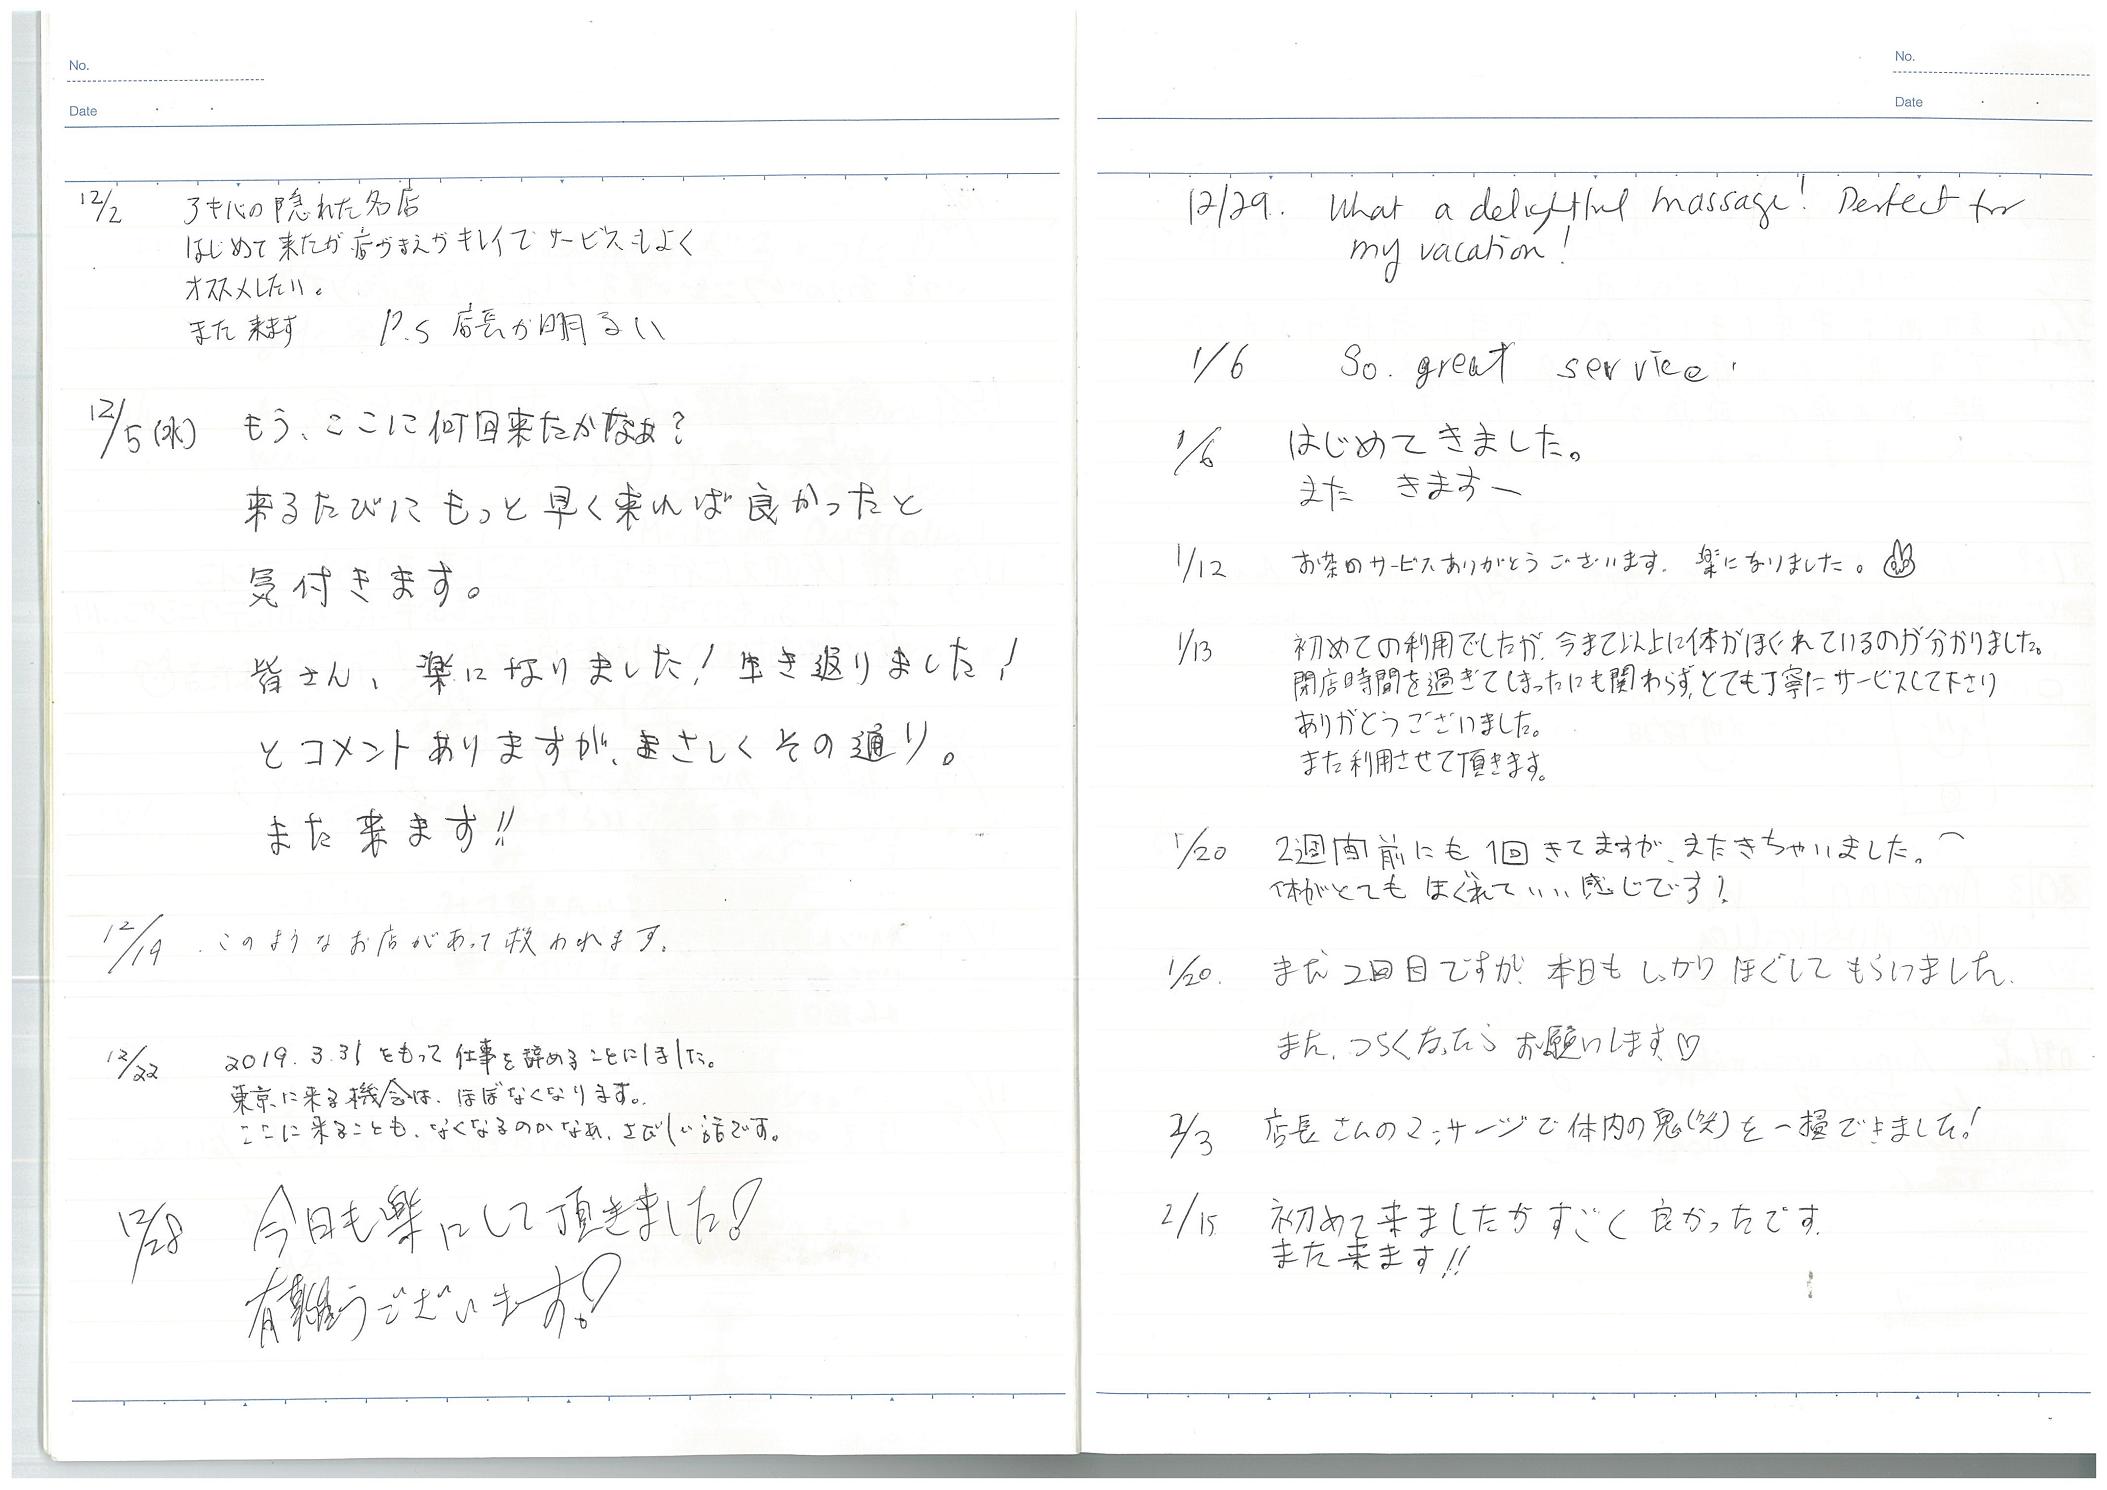 No.
Date
12/2 アキバの隠れた名店
はじめて来たが店がまえがキレイでサービスもよく
オススメしたい。
また来ます P.S 店長が明るい
12/5(水) もう、ここに何回来たかなぁ?
来るたびにもっと早く来れば良かったと
気付きます。
皆さん、楽になりました!生き返りました!
とコメントありますが、まさしくその通り。
また来ます!!
12/19 このようなお店があって救われます。
12/22 2019.3.31をもって仕事を辞めることにしました。
東京に来る機会は、ほぼなくなります。
ここに来ることも、なくなるのかなぁ、さびしい話です。
12/28 今日も楽にして頂きました!
有難うございます!
No.
Date
12/29. What a delightful massage! Perfect for
my vacation!
1/6 So. great service.
1/6 はじめてきました。
また きますー
1/12 お茶のサービスありがとうございます. 楽になりました。
1/13 初めての利用でしたが、今まで以上に体がほぐれているのが分かりました。
閉店時間を過ぎてしまったにも関わらず、とても丁寧にサービスして下さり
ありがとうございました。
また利用させて頂きます。
1/20 2週間前にも1回きてますが、またきちゃいました。
体がとても ほぐれていい感じです!
1/20. まだ2回目ですが、本日もしっかりほぐしてもらいました.
また、つらくなったらお願いします♡
2/3 店長さんのマッサージで体内の鬼(笑)を一掃できました!
2/15 初めて来ましたがすごく良かったです.
また来ます!!